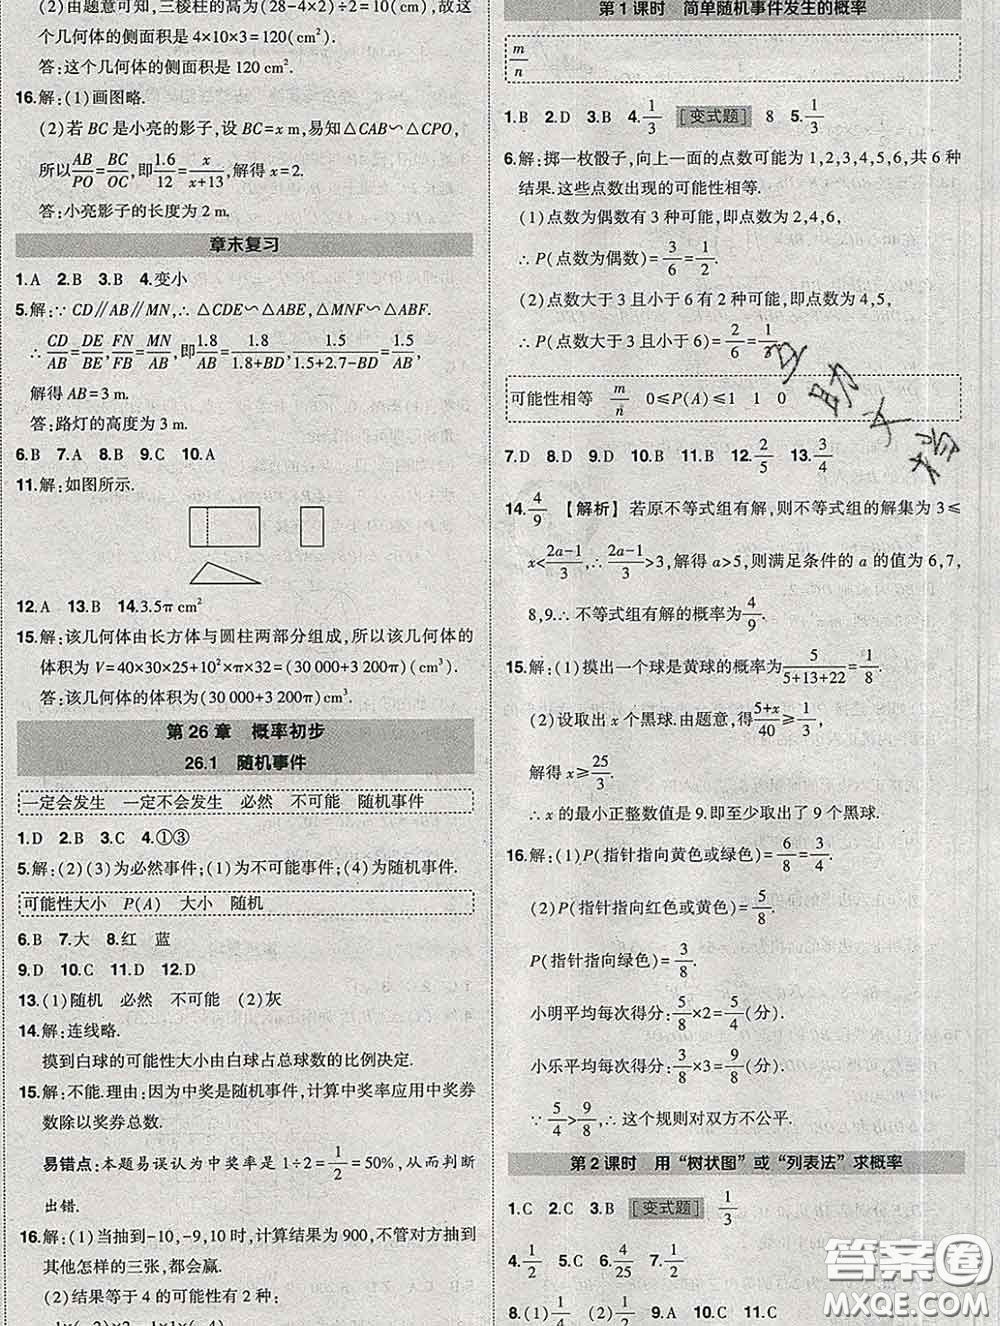 (2)由题意可知,三棱柱的高为(28-4×2)÷2=10(cm),故这
个几何体的侧面积是4×10×3=120(cm²).
答:这个几何体的侧面积是120 cm².
16.解:(1)画图略.
(2)若BC是小亮的影子,设BC=x m,易知△CAB∽△CPO,
所以AB/PO=BC/OC,即1.6/12=x/(x+13),解得x=2.
答:小亮影子的长度为2 m.
章末复习
1.A 2.B 3.B 4.变小
5.解:∵CD∥AB∥MN,∴△CDE∽△ABE,△MNF∽△ABF.
∴CD/AB=DE/BE,FN/FB=MN/AB,即1.8/AB=1.8/(1.8+BD),1.5/(1.5+2.7-BD)=1.5/AB,
解得AB=3 m.
答:路灯的高度为3 m.
6.B 7.B 8.B 9.C 10.A
11.解:如图所示.
12.A 13.B 14.3.5π cm²
15.解:该几何体由长方体与圆柱两部分组成,所以该几何体的
体积为V=40×30×25+10²×π×32=(30 000+3 200π)(cm³).
答:该几何体的体积为(30 000+3 200π)cm³.
第26章 概率初步
26.1 随机事件
一定会发生 一定不会发生 必然 不可能 随机事件
1.D 2.B 3.C 4.①③
5.解:(2)(3)为必然事件;(1)为不可能事件;(4)为随机事件.
可能性大小 P(A) 大小 随机
6.B 7.大 8.红 蓝
9.D 10.C 11.D 12.D
13.(1)随机 必然 不可能 (2)灰
14.解:连线略.
摸到白球的可能性大小由白球占总球数的比例决定.
15.解:不能.理由:因为中奖是随机事件,计算中奖率应用中奖券
数除以奖券总数.
易错点:本题易误认为中奖率是1÷2=1/2=50%,从而判断
出错.
16.解:(1)当抽到-10,-9,10时,计算结果为900,不管对方抽到
其他怎样的三张,都会赢.
(2)结果等于4的可能性有2种:
第1课时 简单随机事件发生的概率
m/n
1.B 2.D 3.B 4.1/3 [变式题] 8 5.1/3
6.解:掷一枚骰子,向上一面的点数可能为1,2,3,4,5,6,共6种
结果.这些点数出现的可能性相等.
(1)点数为偶数有3种可能,即点数为2,4,6,
∴P(点数为偶数)=3/6=1/2.
(2)点数大于3且小于6有2种可能,即点数为4,5,
∴P(点数大于3且小于6)=2/6=1/3.
可能性相等 m/n 0≤P(A)≤1 1 0
7.D 8.B 9.D 10.B 11.B 12.2/5 13.3/4
14.4/9 【解析】若原不等式组有解,则不等式组的解集为3≤
x<(2a-1)/3,∴(2a-1)/3>3,解得a>5,则满足条件的a的值为6,7,
8,9.∴不等式组有解的概率为4/9.
15.解:(1)摸出一个球是黄球的概率为5/(5+13+22)=1/8.
(2)设取出了x个黑球.由题意,得(5+x)/40≥1/3,
解得x≥25/3.
∴x的最小正整数值是9.即至少取出了9个黑球.
16.解:(1)P(指针指向黄色或绿色)=6/8=3/4.
(2)P(指针指向红色或黄色)=5/8.
P(指针指向绿色)=3/8.
小明平均每次得分:5/8×2=5/4(分).
小乐平均每次得分:3/8×3=9/8(分).
∵5/4>9/8,∴这个规则对双方不公平.
第2课时 用“树状图”或“列表法”求概率
1.C 2.C 3.B [变式题] 1/3
4.1/2 5.C 6.4/25 7.1/2
8.(1)1/2 9.A 10.C 11.C
答案圈
MXQE.COM